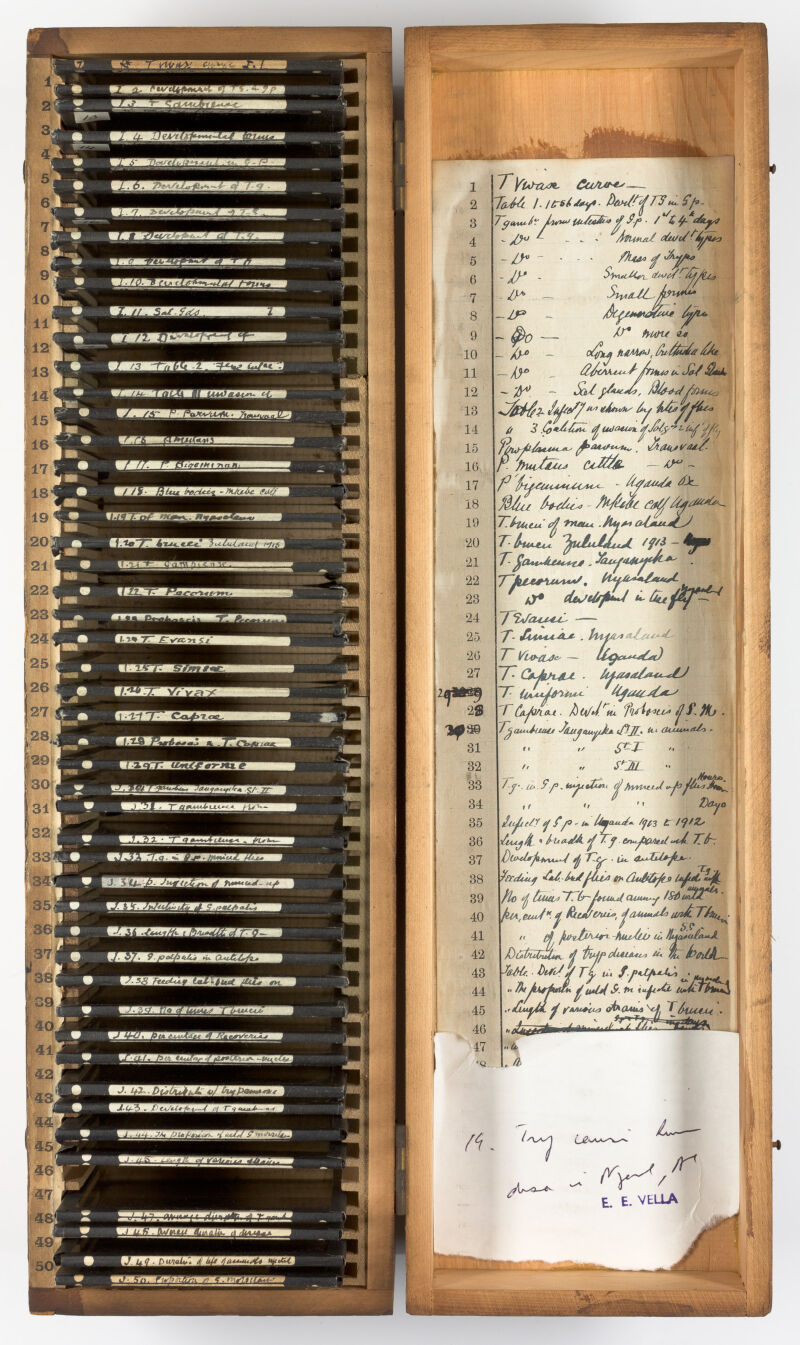 1
2
3
4
5
6
7
8
9
10
11
12
13
14
15
16
17
18
19
20
21
22
23
24
25
26
27
28
29
30
31
32
33
34
35
36
37
38
39
40
41
42
43
44
45
46
47
48
49
50
T Vivax curve I.1
I 2 Development of T.G.
I 3 T Gambiense
I. 4 Developmental forms
I. 5 Development in G. P.
I. 6. Development of T. g.
I. 7. Development of T. G.
I. 8 Development of T. g.
I. 9 Development of T
I. 10. Developmental forms
I. 11. Sal. Gds.
I 12 Development of
I. 13 Table. 2.
I. 14 Table III invasion of
I. 15 P. Parvum. Transvaal
I. 16 Mutans
I. 17. P. Bigeminum
I 18. Blue bodies - Mkebe calf
I. 19 T. of Man. Nyasaland
I. 20 T. brucei Zululand 1913
I. 21 T. Gambiense.
I. 22 T. Pecorum
I. 23 Proboscis T. Pecorum
I. 24 T. Evansi
I. 25 T. Simiae
I. 26 T. Vivax
I. 27 T. Caprae
I. 28 Proboscis T. Caprae
I. 29 T. Uniforme
J. 30 T gambiense Tanganyika St. II
J. 31. T gambiense from
J. 32. T gambiense. from
J. 33 T.g. in G.p. minced flies
J. 34. Injection of minced up
J. 35. Infectivity of G. palpalis
J. 36. Length & Breadth of T. g -
J. 37. G. palpalis in antelope
J. 38 Feeding lab-bred flies on
J. 39. No of times T brucei
J. 40. Percentage of Recoveries
J. 41. Per centage of posterior-nuclei
J. 42. Distribution of tryp diseases
J. 43. Development of T gambiense
J. 44. The proportion of wild G morsitans
J. 45. Length of various strains
J. 47. average duration of
J. 48. Average duration of disease
J. 49. Duration of life of animals injected
J. 50. Proportion of G. morsitans
1 T Vivax curve -
2 Table 1. 1 to 56 days. Develt of T G in G p-
3 T gambe from intestines of G.p. 1st to 4th days
4 - Do - Normal develt types
5 - Do - Mass of Tryps
6 - Do - Smaller develt types
7 - Do - Small forms
8 - Do - Degenerative types
9 - Do - Do more so
10 - Do - Long narrow, Crithidia like
11 - Do - Aberrent forms in Sal Glands
12 - Do - Sal glands, Blood forms
13 Table 2 Infecty as shown by bites of flies
14 " 3 of invasion of
15 Piroplasma parvum. Transvaal
16 P. mutans cattle - Do -
17 P bigeminum - Uganda Ox
18 Blue bodies - Mkebe calf Uganda
19 T. brucei of man. Nyasaland
20 T. brucei Zululand 1913 -
21 T. Gambiense. Tanganyika
22 T pecorum. Nyasaland
23 Do developmt in the fly - Nyasaland
24 T Evansi -
25 T. Simiae. Nyasaland
26 T Vivax - Uganda
27 T. Caprae. Nyasaland
29 T. uniforme Uganda
28 T Caprae. Develt in Proboscis of G. M.
30 T gambiense Tanganyika St II. in animals.
31 " " St I "
32 " " St III "
33 T.g. in G p. injection of minced up flies Hours
34 " " " Days
35 Infecty of G p - in Uganda 1903 to 1912
36 Length & breadth of T. g. compared with T. b.
37 Development of T. g. in antelope.
38 Feeding Lab. bred flies on Antelope infected with T g
39 No of times T. b found among 180 wild animals.
40 per, cent of Recoveries, of animals with T brucei
41 " of posterior-nuclei in Nyasaland
42 Distribution of tryp diseases in the World
43 Table. Develt of T g in G. palpalis
44 " The proportn of wild G. m infected with T brucei
45 " Length of various strains of T brucei.
46
47
19. Tryp
in
E. E. VELLA